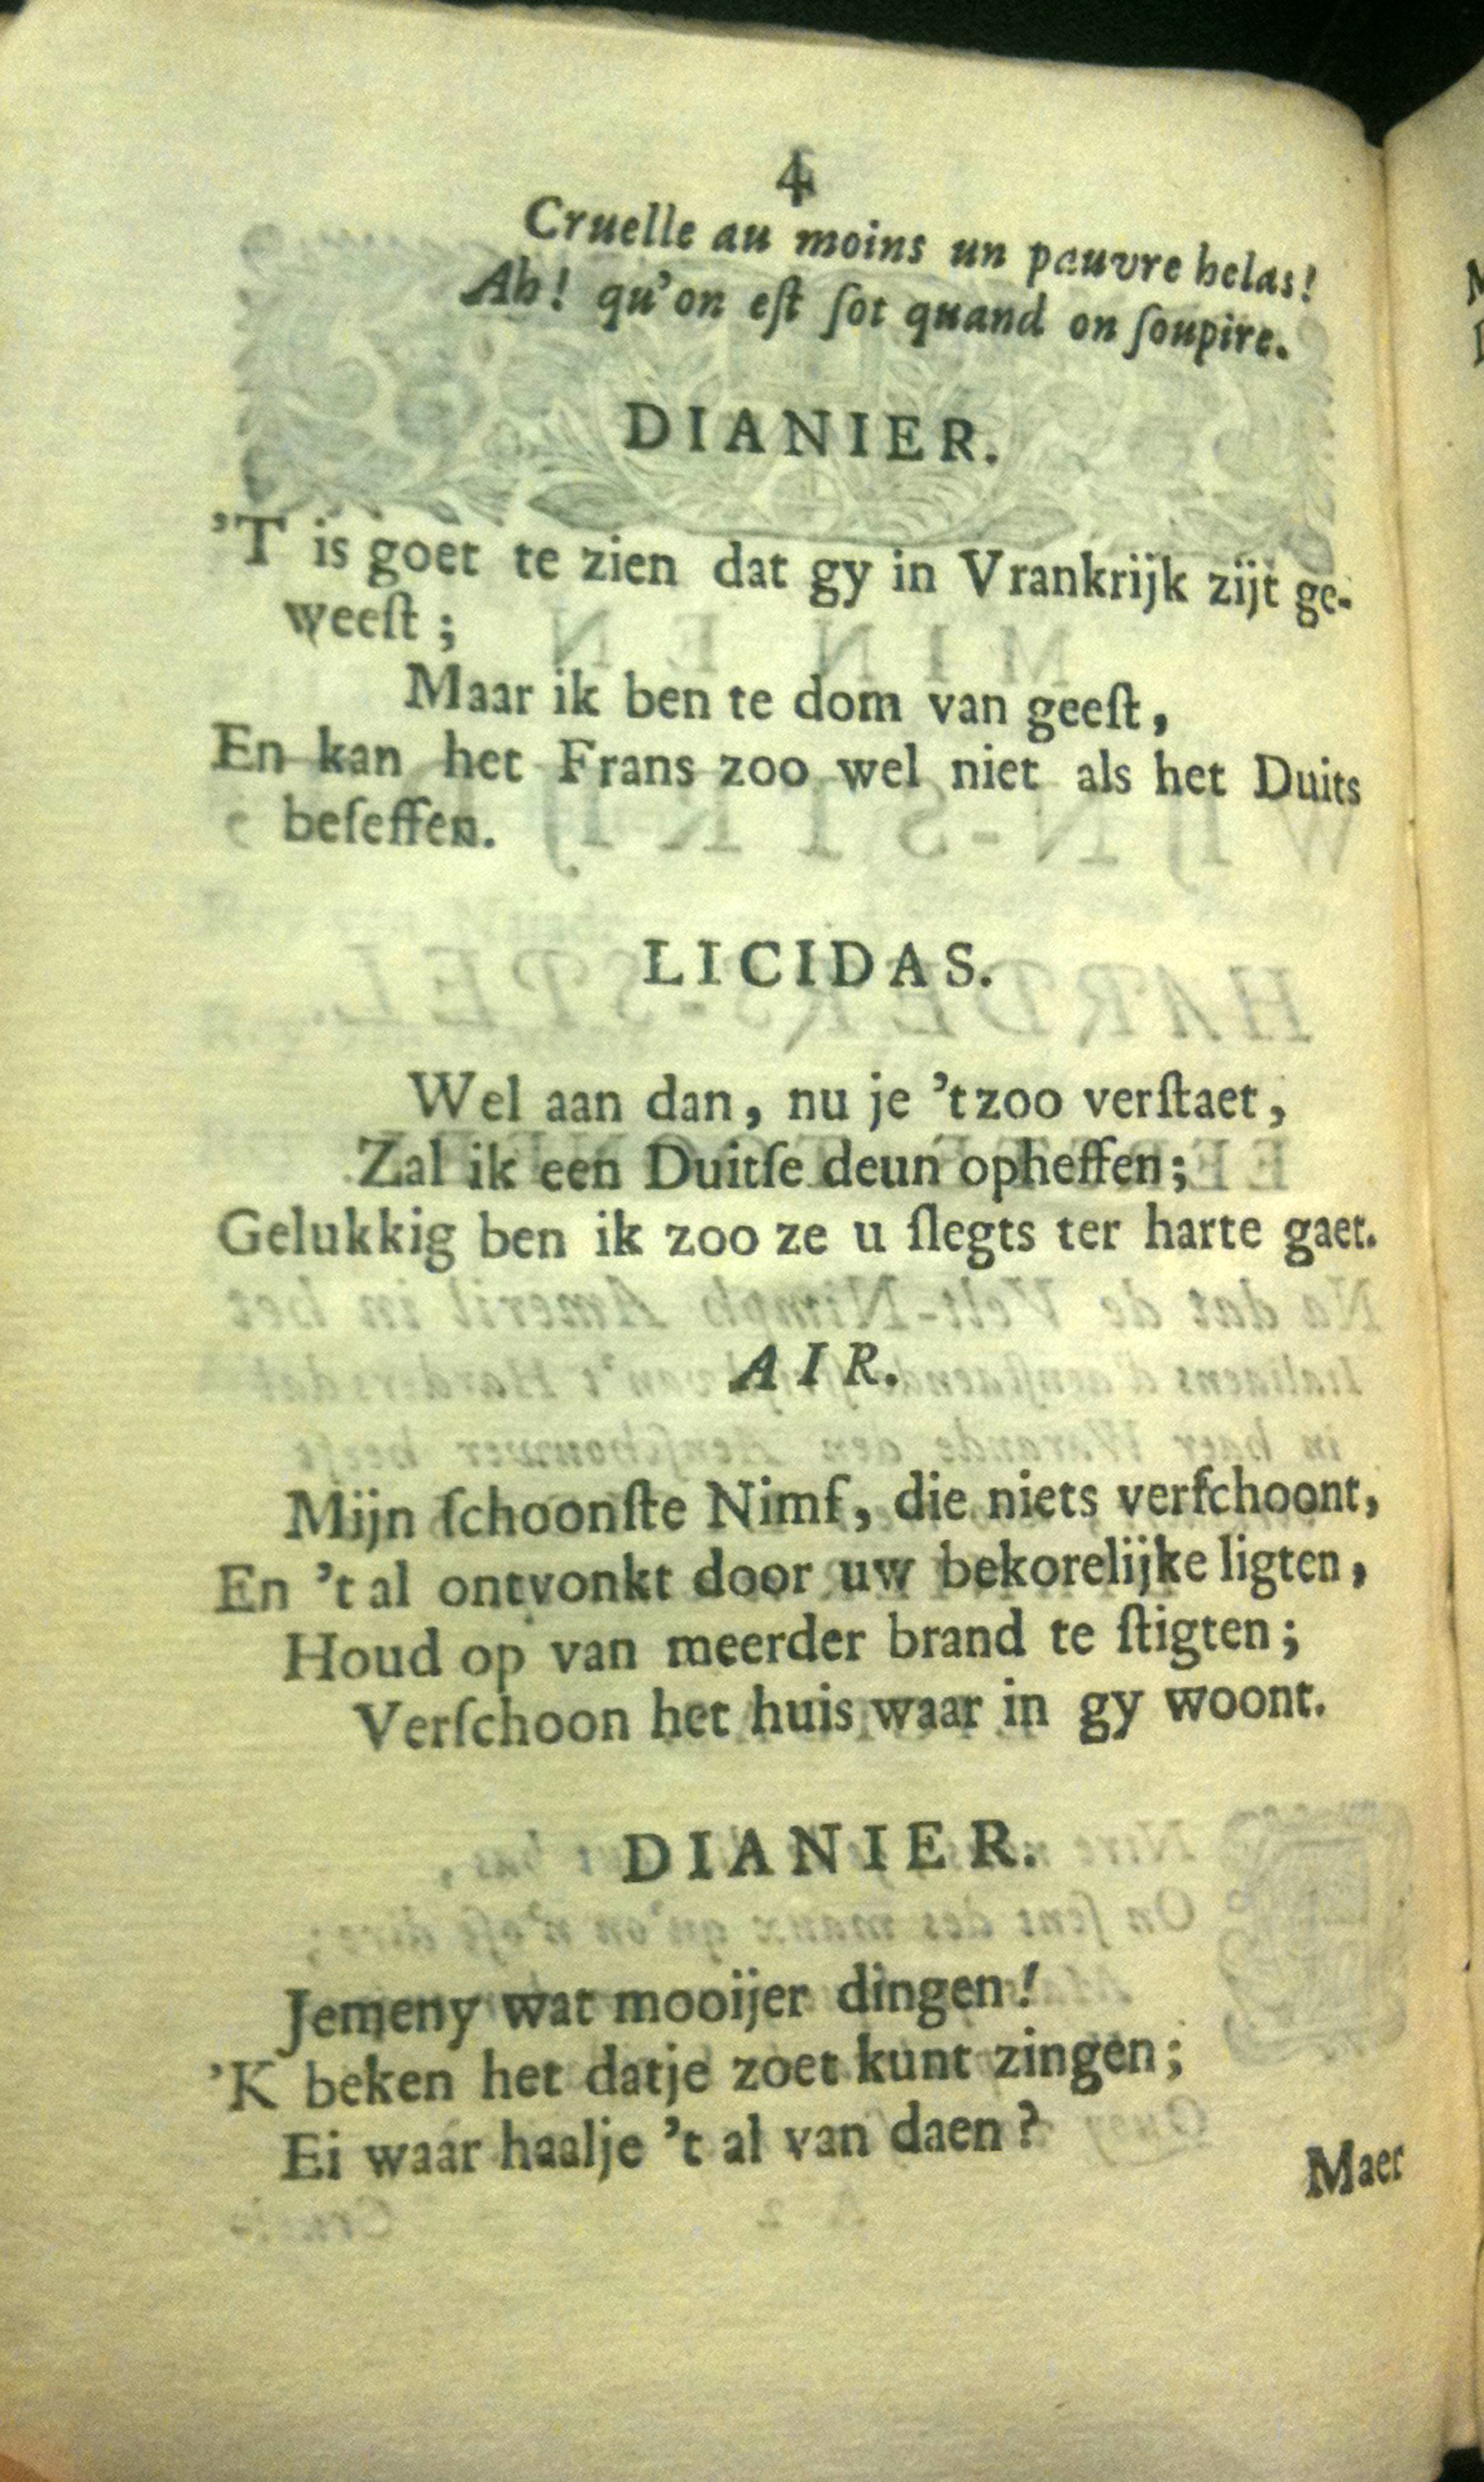 4
Cruelle au moins un pauvre helas!
Ah! qu'on eſt ſot quand on ſoupire.
DIANIER.
'T is goet te zien dat gy in Vrankrijk zijt ge-
weeſt;
Maar ik ben te dom van geeſt,
En kan het Frans zoo wel niet als het Duits
beſeffen.
LICIDAS.
Wel aan dan, nu je 't zoo verſtaet,
Zal ik een Duitſe deun opheffen;
Gelukkig ben ik zoo ze u ſlegts ter harte gaet.
AIR.
Mijn ſchoonſte Nimf, die niets verſchoont,
En 't al ontvonkt door uw bekorelijke ligten,
Houd op van meerder brand te ſtigten;
Verſchoon het huis waar in gy woont.
DIANIER.
Jemeny wat mooijer dingen!
'K beken het datje zoet kunt zingen;
Ei waar haalje 't al van daen?
Maer